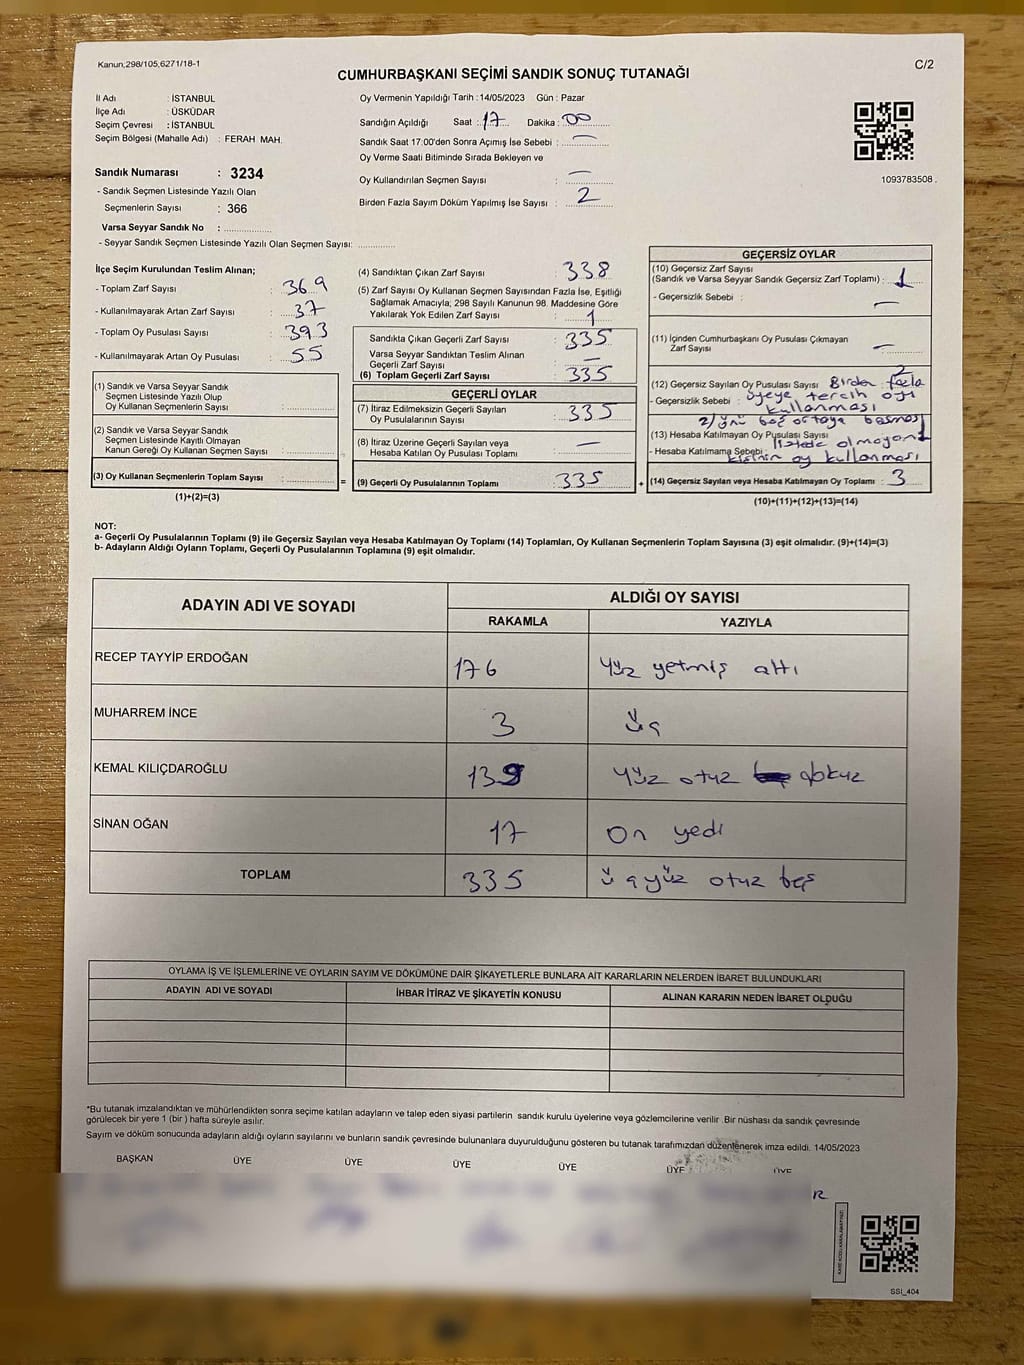 Kanun;298/105,6271/18-1
C/2
CUMHURBAŞKANI SEÇİMİ SANDIK SONUÇ TUTANAĞI
İl Adı : İSTANBUL
İlçe Adı : ÜSKÜDAR
Seçim Çevresi : İSTANBUL
Seçim Bölgesi (Mahalle Adı) : FERAH MAH.
Sandık Numarası : 3234
- Sandık Seçmen Listesinde Yazılı Olan
Seçmenlerin Sayısı : 366
Varsa Seyyar Sandık No :
- Seyyar Sandık Seçmen Listesinde Yazılı Olan Seçmen Sayısı:
Oy Vermenin Yapıldığı Tarih : 14/05/2023 Gün : Pazar
Sandığın Açıldığı Saat : 17 Dakika : 00
Sandık Saat 17:00'den Sonra Açımış İse Sebebi : —
Oy Verme Saati Bitiminde Sırada Bekleyen ve
Oy Kullandırılan Seçmen Sayısı : —
Birden Fazla Sayım Döküm Yapılmış İse Sayısı : 2
1093783508
İlçe Seçim Kurulundan Teslim Alınan;
- Toplam Zarf Sayısı : 369
- Kullanılmayarak Artan Zarf Sayısı : 37
- Toplam Oy Pusulası Sayısı : 393
- Kullanılmayarak Artan Oy Pusulası : 55
(1) Sandık ve Varsa Seyyar Sandık
Seçmen Listesinde Yazılı Olup
Oy Kullanan Seçmenlerin Sayısı :
(2) Sandık ve Varsa Seyyar Sandık
Seçmen Listesinde Kayıtlı Olmayan
Kanun Gereği Oy Kullanan Seçmen Sayısı :
(3) Oy Kullanan Seçmenlerin Toplam Sayısı :
(1)+(2)=(3)
(4) Sandıktan Çıkan Zarf Sayısı : 338
(5) Zarf Sayısı Oy Kullanan Seçmen Sayısından Fazla İse, Eşitliği
Sağlamak Amacıyla; 298 Sayılı Kanunun 98. Maddesine Göre
Yakılarak Yok Edilen Zarf Sayısı : 1
Sandıkta Çıkan Geçerli Zarf Sayısı : 335
Varsa Seyyar Sandıktan Teslim Alınan
Geçerli Zarf Sayısı : —
(6) Toplam Geçerli Zarf Sayısı : 335
GEÇERLİ OYLAR
(7) İtiraz Edilmeksizin Geçerli Sayılan
Oy Pusulalarının Sayısı : 335
(8) İtiraz Üzerine Geçerli Sayılan veya
Hesaba Katılan Oy Pusulası Toplamı : —
= (9) Geçerli Oy Pusulalarının Toplamı : 335 +
GEÇERSİZ OYLAR
(10) Geçersiz Zarf Sayısı
(Sandık ve Varsa Seyyar Sandık Geçersiz Zarf Toplamı) : 1
- Geçersizlik Sebebi : —
(11) İçinden Cumhurbaşkanı Oy Pusulası Çıkmayan
Zarf Sayısı : —
(12) Geçersiz Sayılan Oy Pusulası Sayısı : 2 Birden fazla
- Geçersizlik Sebebi : üyeye tercih oyu
kullanması
2/ yönü boş ortaya basması
(13) Hesaba Katılmayan Oy Pusulası Sayısı listede olmayan 1
- Hesaba Katılmama Sebebi : kişinin oy kullanması
(14) Geçersiz Sayılan veya Hesaba Katılmayan Oy Toplamı : 3
(10)+(11)+(12)+(13)=(14)
NOT:
a- Geçerli Oy Pusulalarının Toplamı (9) ile Geçersiz Sayılan veya Hesaba Katılmayan Oy Toplamı (14) Toplamları, Oy Kullanan Seçmenlerin Toplam Sayısına (3) eşit olmalıdır. (9)+(14)=(3)
b- Adayların Aldığı Oyların Toplamı, Geçerli Oy Pusulalarının Toplamına (9) eşit olmalıdır.
ADAYIN ADI VE SOYADI ALDIĞI OY SAYISI
RAKAMLA YAZIYLA
RECEP TAYYİP ERDOĞAN 176 Yüz yetmiş altı
MUHARREM İNCE 3 Üç
KEMAL KILIÇDAROĞLU 139 Yüz otuz dokuz
SİNAN OĞAN 17 On yedi
TOPLAM 335 üçyüz otuz beş
OYLAMA İŞ VE İŞLEMLERİNE VE OYLARIN SAYIM VE DÖKÜMÜNE DAİR ŞİKAYETLERLE BUNLARA AİT KARARLARIN NELERDEN İBARET BULUNDUKLARI
ADAYIN ADI VE SOYADI İHBAR İTİRAZ VE ŞİKAYETİN KONUSU ALINAN KARARIN NEDEN İBARET OLDUĞU
*Bu tutanak imzalandıktan ve mühürlendikten sonra seçime katılan adayların ve talep eden siyasi partilerin sandık kurulu üyelerine veya gözlemcilerine verilir. Bir nüshası da sandık çevresinde
görülecek bir yere 1 (bir ) hafta süreyle asılır.
Sayım ve döküm sonucunda adayların aldığı oyların sayılarını ve bunların sandık çevresinde bulunanlara duyurulduğunu gösteren bu tutanak tarafımızdan düzenlenerek imza edildi. 14/05/2023
BAŞKAN ÜYE ÜYE ÜYE ÜYE ÜYE ÜYE
R
SSI_404